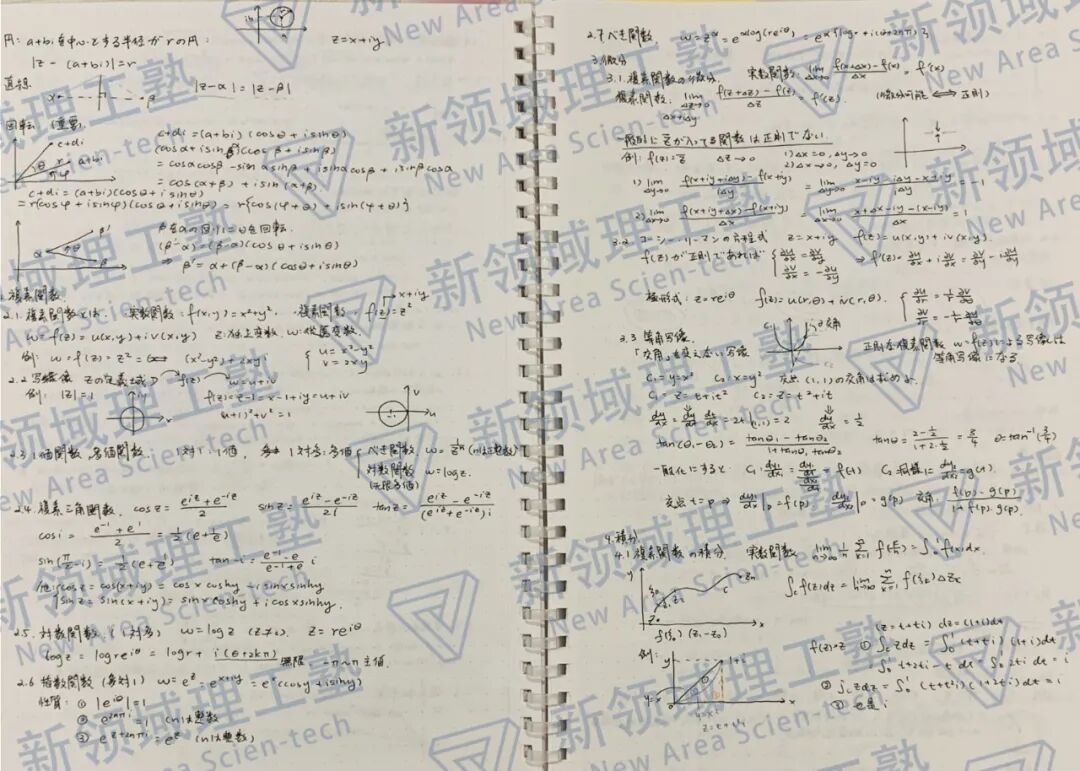 円: a+biを中心とする半径がrの円:
z=x+iy
|z-(a+bi)|=r
直線
|z-α|=|z-β|
回転 (重要)
c+di=(a+bi)(cosθ+isinθ)
(cosα+isinα)(cosβ+isinβ)
=cosαcosβ-sinαsinβ+isinαcosβ+isinβcosα
=cos(α+β)+isin(α+β)
c+di=(a+bi)(cosθ+isinθ)
=r(cosφ+isinφ)(cosθ+isinθ)=r{cos(φ+θ)+isin(φ+θ)}
βをαの回りにθを回転.
(β'-α)=(β-α)(cosθ+isinθ)
⇒ β'=α+(β-α)(cosθ+isinθ)
複素関数.
2.1. 複素関数とは. 実数関数: f(x,y)=x²+y². 複素関数: f(z)=z²
x+iy
w=f(z)=u(x,y)+iv(x,y) z:独立变数. w:従属变数.
例: w=f(z)=z² (x²-y²)+2xyi { u=x²-y² v=2xy
2.2 写像 zの定義域D f(z) w=u+iv
例: |z|=1 f(z)=z-1=x-1+iy=u+iv
(u+1)²+v²=1
2.3 1価関数, 多価関数. 1対1:1価 1対多:多価 べき関数 w=z^{1/n} (nは正整数)
対数関数 w=logz.
(無限多価)
2.4. 複素三角関数. cosz=(e^{iz}+e^{-iz})/2 sinz=(e^{iz}-e^{-iz})/2i tanz=(e^{iz}-e^{-iz})/(e^{iz}+e^{-iz})i
cosi=(e^{-1}+e^{1})/2=½(e+1/e)
sin(π/2-i)=½(e+1/e) tan-i=
cosz=cos(x+iy)=cosxcoshy-isinxsinhy
sinz=sin(x+iy)=sinxcoshy+icosxsinhy.
2.5. 対数関数 (1対多) w=logz (z≠0). z=re^{iθ}
logz=logre^{iθ}=logr+i(θ+2kπ) 無限 -π~π 主値.
2.6 指数関数 (多対1) w=e^z=e^{x+iy}=e^x(cosy+isiny)
性質: ① |e^{iθ}|=1
② e^{2nπi}=1 (nは整数)
③ e^{z+2nπi}=e^z (nは整数)
2.7 べき関数 w=z^α=e^{αlog(re^{iθ})}=e^{α{logr+i(θ+2nπ)}}
3.微分
3.1. 複素関数の微分. 実数関数: lim_{Δx→0} (f(x+Δx)-f(x))/Δx=f'(x)
複素関数: lim_{Δz→0} (f(z+Δz)-f(z))/Δz=f'(z). (微分可能 ⇔ 正則)
Δx+iΔy
一般にz̄が入ってる関数は正則でない.
例: f(z)=z̄ Δz→0 1) Δx=0, Δy→0
2) Δx→0, Δy=0
1) lim_{Δy→0} (f(x+iy+iΔy)-f(x+iy))/iΔy = lim_{Δy→0} (x-iy-iΔy-x+iy)/iΔy=-1
2) lim_{Δx→0} (f(x+iy+Δx)-f(x+iy))/Δx = lim_{Δx→0} (x+Δx-iy-(x-iy))/Δx=1
3.2 コーシー・リーマンの方程式 z=x+iy f(z)=u(x,y)+iv(x,y).
f(z)が正則であれば { ∂u/∂x=∂v/∂y ∂v/∂x=-∂u/∂y ⇒ f'(z)=∂u/∂x+i∂v/∂x=∂v/∂y-i∂u/∂y
極形式: z=re^{iθ} f(z)=u(r,θ)+iv(r,θ). { ∂u/∂r=1/r ∂v/∂θ ∂v/∂r=-1/r ∂u/∂θ
3.3 等角写像 交角
「交角」を变えない写像 正則な複素関数 w=f(z)による写像は
等角写像になる
C₁=y=x² C₂=x=y² 交点(1,1)の交角は求めよ.
C₁=z=t+it² C₂=z=t²+it
dy/dx=2t|(1,1)=2 dy/dx=½
tan(θ₁-θ₂)=(tanθ₁-tanθ₂)/(1+tanθ₁tanθ₂) tanθ=(2-½)/(1+2·½)=3/4 θ=tan⁻¹(3/4)
一般化にすると C₁: =f(t) C₂同様に =g(t).
交点 t=p ⇒ =f(p) =g(p) 交角 (f(p)-g(p))/(1+f(p)·g(p))
4.積分
4.1 複素関数の積分. 実数関数: lim_{n→∞} 1/n Σ_{k=1}^{n} f(k/n)=∫₀¹f(x)dx.
∫_C f(z)dz=lim_{n→∞} Σ_{k=1}^{n} f(ζ_k)Δz_k
f(ζ₁)(z₁-z₀)
例: 1+i
(z=t+ti) dz=(1+i)dt
f(z)=z ① ∫_C zdz=∫₀¹(t+ti)(1+i)dt
=∫₀¹t+2ti-t dt=∫₀¹2ti dt=i
② ∫_C zdz=∫₀¹(t+t²i)(1+2ti)dt=i
③ 也是i
y=x²
z=t+t²i
新领域理工塾
New Area Scien-tech